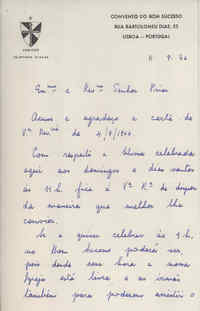 CONVENTO DO BOM SUCESSO
RUA BARTOLOMEU DIAS, 53
LISBOA - PORTUGAL
VERITAS
Exmo e Revmo Senhor Prior
Acuso e agradeço a carta de
Va Revcia de
Com respeito à Missa celebrada
aqui aos domingos e dias santos
às 11 h. fica a Va Ra de dispor
da maneira que melhor lhe
convier.
Se a quiser celebrar às 9 h.
no Bom Sucesso poderá ser
pois desde essa hora a nossa
Igreja está livre e as irmãs
também para poderem assistir o